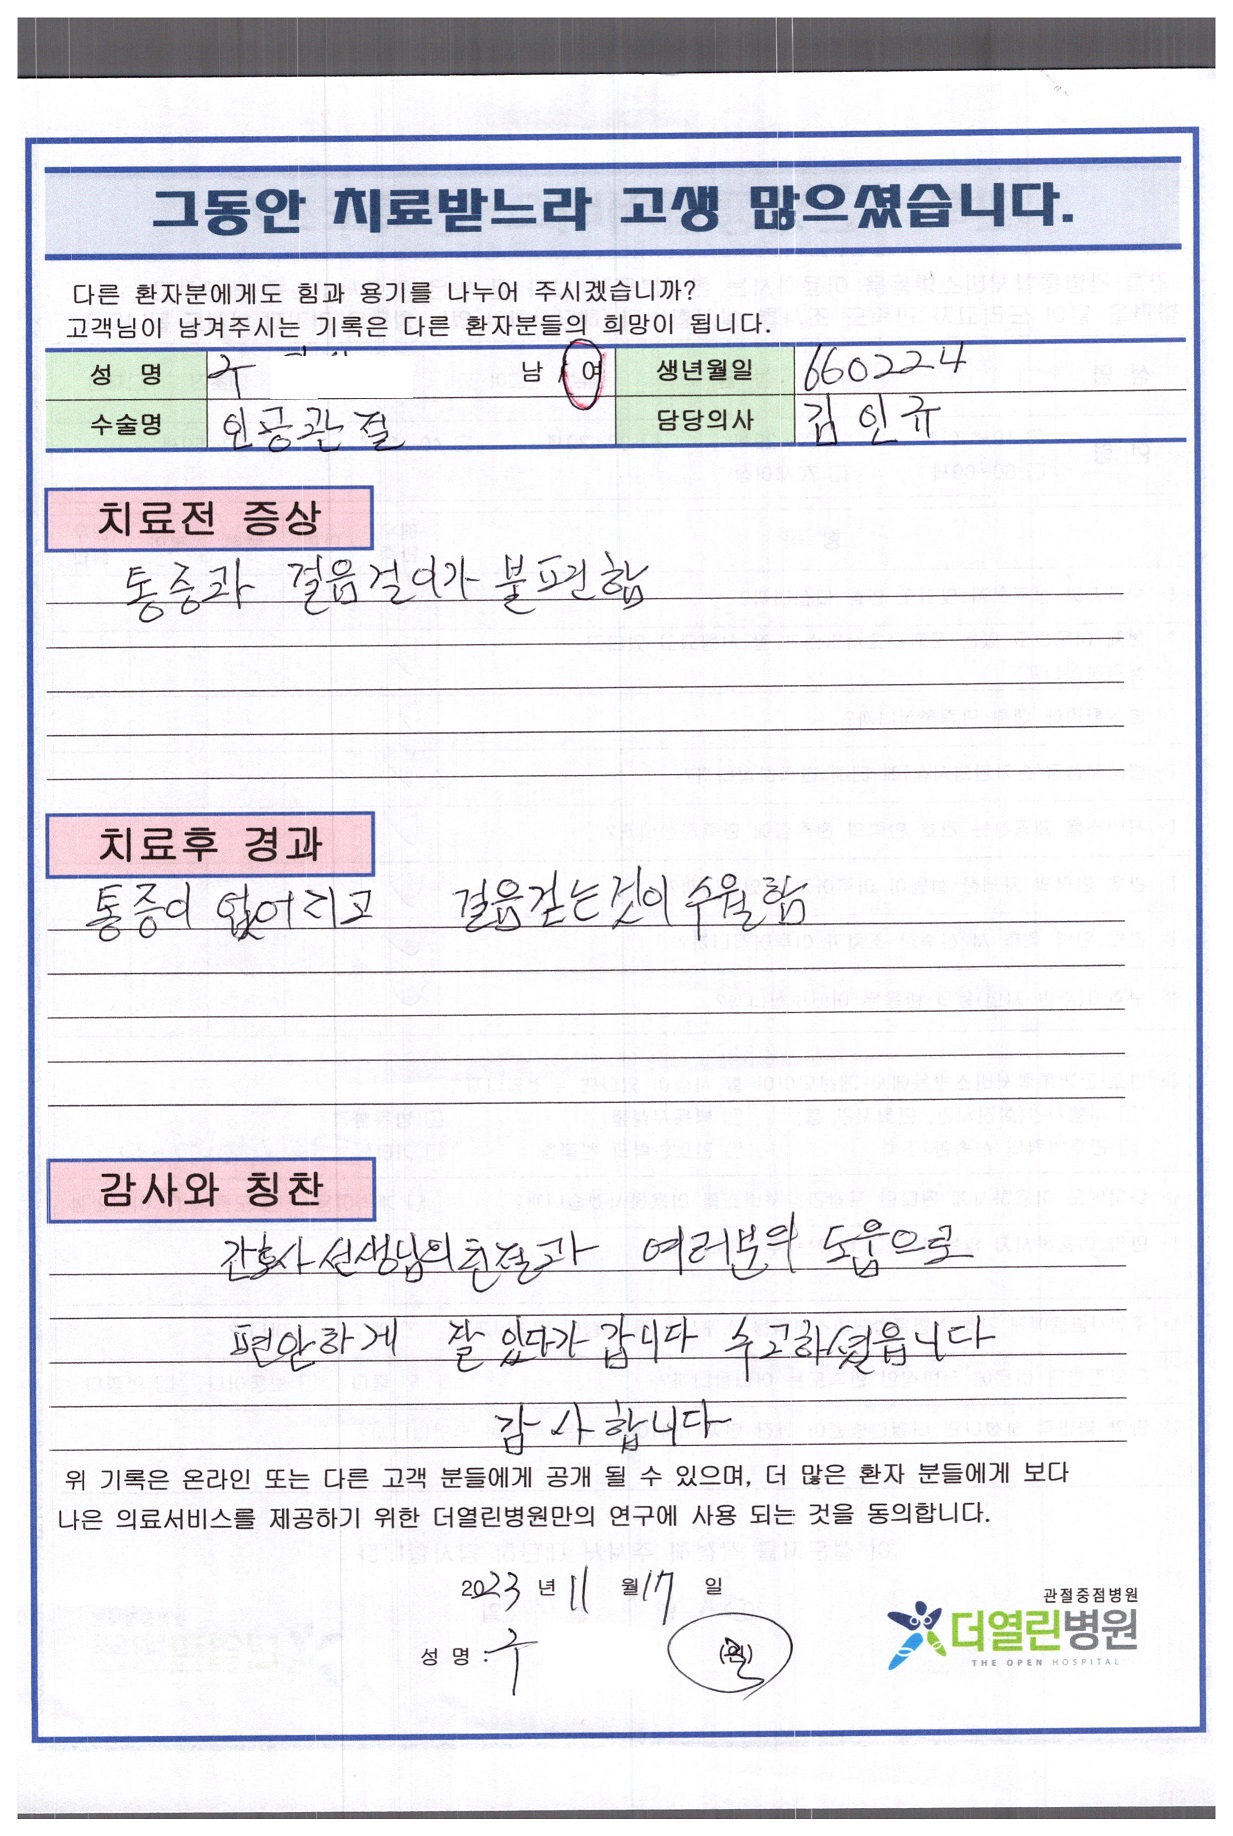 그동안 치료받느라 고생 많으셨습니다.
다른 환자분에게도 힘과 용기를 나누어 주시겠습니까?
고객님이 남겨주시는 기록은 다른 환자분들의 희망이 됩니다.
성 명 구 남 / 여 생년월일 660224
수술명 인공관절 담당의사 김인규
치료전 증상
통증과 걸음걸이가 불편함
치료후 경과
통증이 없어지고 걸음걷는것이 수월함
감사와 칭찬
간호사선생님의 친절과 여러분의 도움으로
편안하게 잘 있다가 갑니다 수고하셨읍니다
감사합니다
위 기록은 온라인 또는 다른 고객 분들에게 공개 될 수 있으며, 더 많은 환자 분들에게 보다
나은 의료서비스를 제공하기 위한 더열린병원만의 연구에 사용 되는 것을 동의합니다.
2023 년 11 월 17 일
성 명 : 구
관절중점병원
더열린병원
THE OPEN HOSPITAL